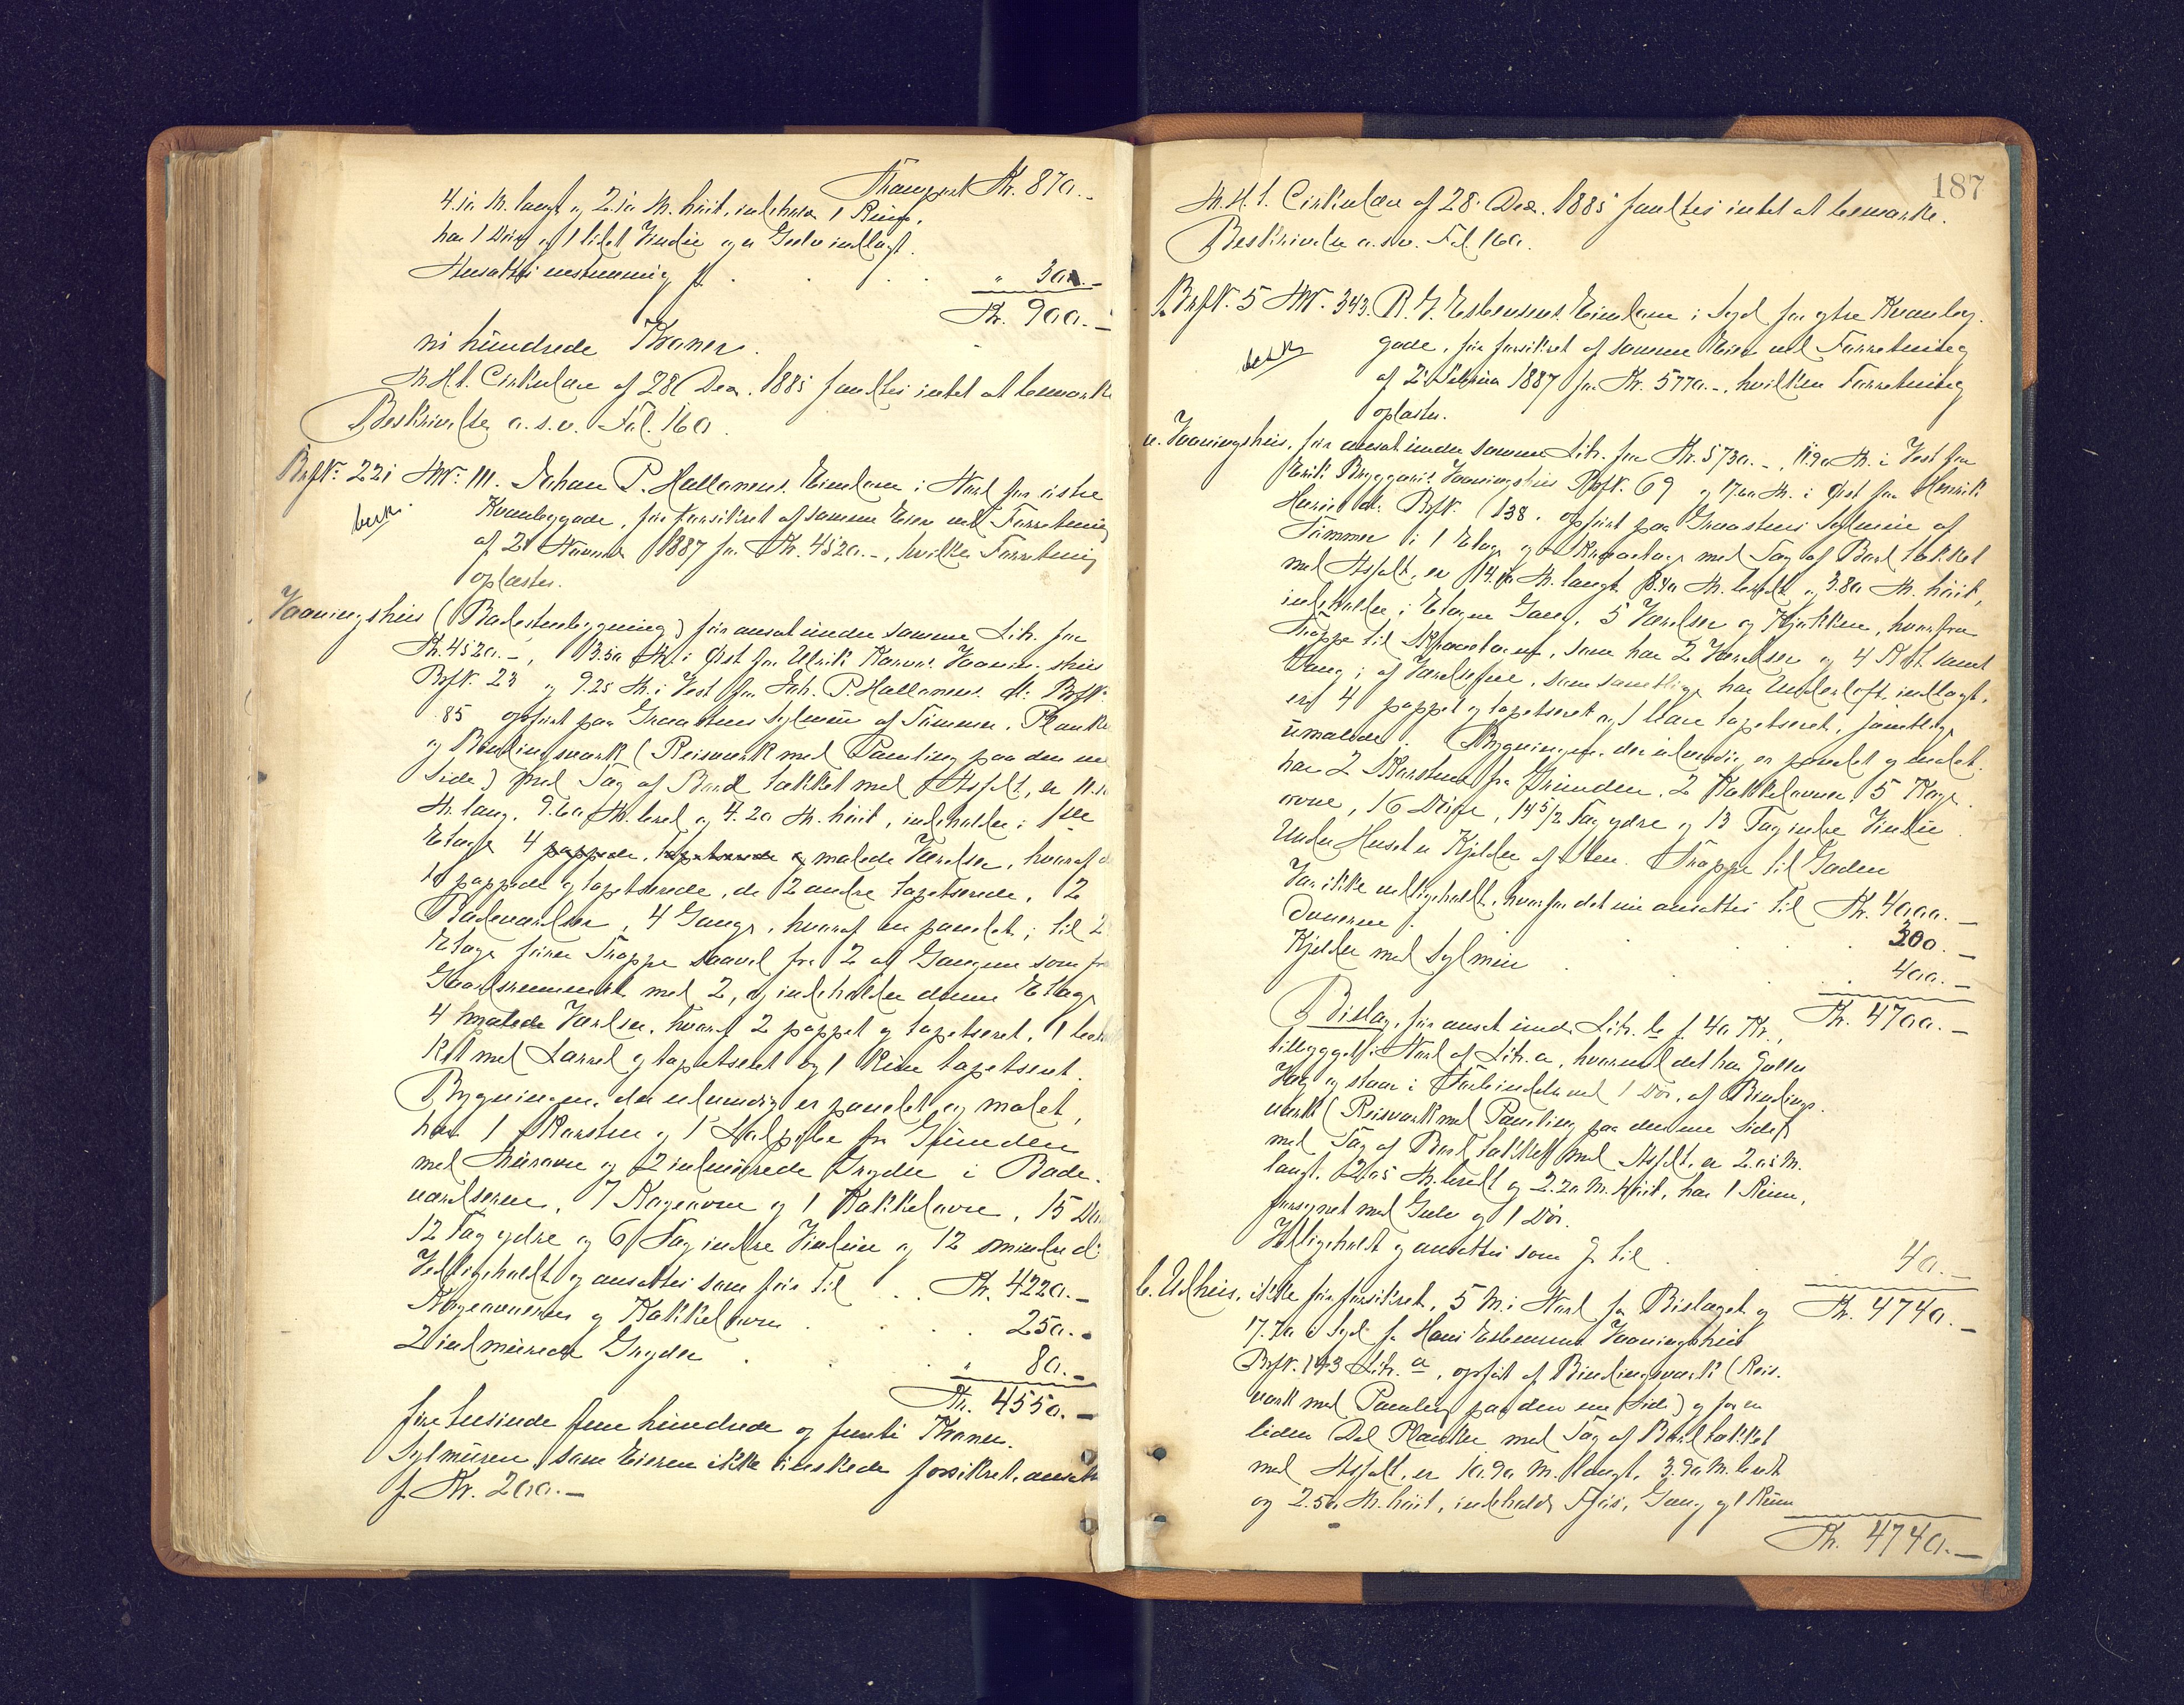 Transport Kr. 870.-
4.10 M. langt og 2.10 M. høit, indeholder 1 Rum,
har 1 Dør og 1 lidet Vindue og er Gulv indlagt.
Ansattes . . . " 30.-
Kr. 900.-
ni hundrede Kroner.
M. H. t. Cirkulære af 28 Dec. 1885 fandtes intet at bemærke
Beskrivelse o. s. v. Fol. 160.
Brfk. No. 221 MNo. 111. Johan P. Hallanens Eiendom i Nord for østre
besk.
Kvænbyggade, før forsikret af samme Eier ved Forretning
af 21 Novemb 1887 for Kr. 4520.-, hvilken Forretning
oplæstes.
Vaaningshus (Badestuebygning) før ansat under samme Litr. for
Kr. 4520.-, 13.50 M. i Øst for Ulrik Vaaningshus
Brfk. 23 og 9.25 M. i Vest for Joh. P. Hallanens dt. Brfk.
85 opført paa Graastens Sylmur af Tømmer, Planke
og Bindingsværk (Reisværk med Paneling paa den ene
Side) med Tag af Bord tækket med Asfalt, er
M. lang, 9.60 M. bred og 4.20 M. høit, indeholder i 1ste
Etage 4 pappede, tapetserede og malede Værelser, hvoraf
pappede og tapetserede, de 2 andre tapetserede, 2
Badeværelser, 4 Gange, hvoraf en panelet; til 2
Etage fører Trappe saavel fra 2 af Gangene som fra
Gaardsrummet med 2, og indeholder denne Etage
4 malede Værelser, hvoraf 2 pappet og tapetseret, 1
Kot med Lærred og tapetseret og 1 Rum tapetseret.
Bygningen, der udvendig er panelet og malet,
har 1 Skorsten og 1 Halvpibe fra Grunden
med Murovn og 2 indmurede Gryder i Bade-
værelserne, 7 Kogeovne og 1 Kakkelovn, 15 Døre
12 Fag ydre og 6 Fag indre Vinduer og 12 mindre dt.
Vedligeholdt og ansattes som før til . . Kr. 4220.-
Kogeovnene og Kakkelovn . . . 250.-
2 indmurede Gryder . . . " 80.-
Kr. 4550.-
fire tusinde fem hundrede og femti Kroner.
Sylmuren, som Eieren ikke ønskede forsikret, ansattes
f. Kr. 200.-
187
M. H. t. Cirkulære af 28. Dec. 1885 fandtes intet at bemærke.
Beskrivelse o. s. v. Fol. 160.
Brfk. 5 MNr. 343. P. J. Esbensens Eiendom i Syd for ytre Kvænbyg-
besk
gade, før forsikret af samme Eier ved Forretning
af 21 Februar 1887 for Kr. 5770.-, hvilken Forretning
oplæstes.
a. Vaaningshus, før ansat under samme Litr. for Kr. 5730.-, 11.90 M. i Vest for
Erik Bryggaris Vaaningshus Brfk. 69 og 17.60 M. i Øst for Henrik
dt. Brfk. 138, opført paa Graastens Sylmur af
Tømmer i 1 Etage og Skraaetage med Tag af Bord tækket
med Asfalt, er M. langt, 8.40 M. bredt og 3.80 M. høit,
indeholder i Etagen Gang, 5 Værelser og Kjøkken, hvorfra
Trappe til Skraaetagen, som har 2 Værelser og 4 Kot samt
Gang; af Værelserne, som samtlige har Underloft indlagt,
er 4 pappet og tapetseret og 1 bare tapetseret, samtlige
umalede. Bygningen, der udvendig er panelet og malet,
har 2 Skorstene fra Grunden, 2 Kakkelovne, 5 Koge-
ovne, 16 Døre, 14 5/12 Fag ydre og 13 Fag indre Vindue.
Under Huset er Kjelder af Sten. Trappe til Gaden
Var ikke vedligeholdt, hvorfor det nu ansattes til Kr. 4000.-
Ovnene f. . . . 300.-
Kjelder med Sylmur . . . 400.-
Kr. 4700.-
Bislag, før ansat under Litr. b f. 40 Kr.,
tilbygget i Nord af Litr. a, hvormed det har fælles
Væg og staar i Forbindelse ved 1 Dør, af Bindings-
værk (Reisværk med Paneling paa den ene Side)
med Tag af Bord tækket med Asfalt, er 2.05 M.
langt, 2.05 M. bredt og 2.20 M. høit, har 1 Rum,
forsynet med Gulv og 1 Dør.
Vedligeholdt og ansattes som før til . . 40.-
Kr. 4740.-
b. Udhus, ikke før forsikret, 5 M. i Nord for Bislaget og
17.70 i Syd for Hans Esbensens Vaaningshus
Brfk. 143 Litr. a, opført af Bindingsværk (Reis-
værk med Paneling paa den ene Side) og for en
liden Del Planker med Tag af Bord tækket
med Asfalt, er 10.90 M. langt, 3.90 M. bredt
og 2.50 M. høit, indeholder Fjøs, Gang og 1 Rum
Kr. 4740.-